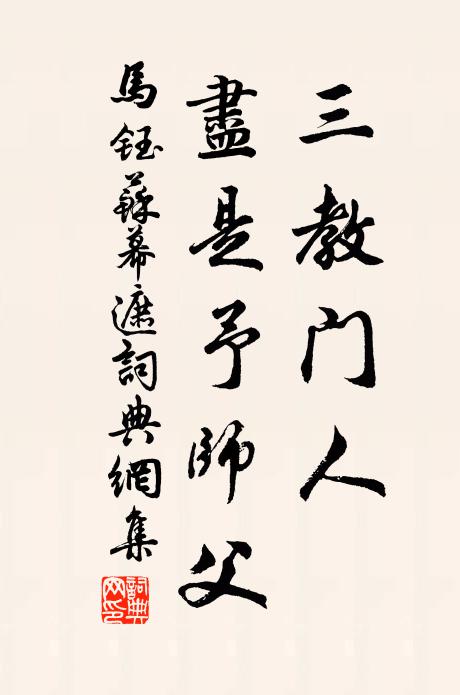 三教門人
盡是予師父
馬鈺蘇幕遮詞典網集
詞典网印